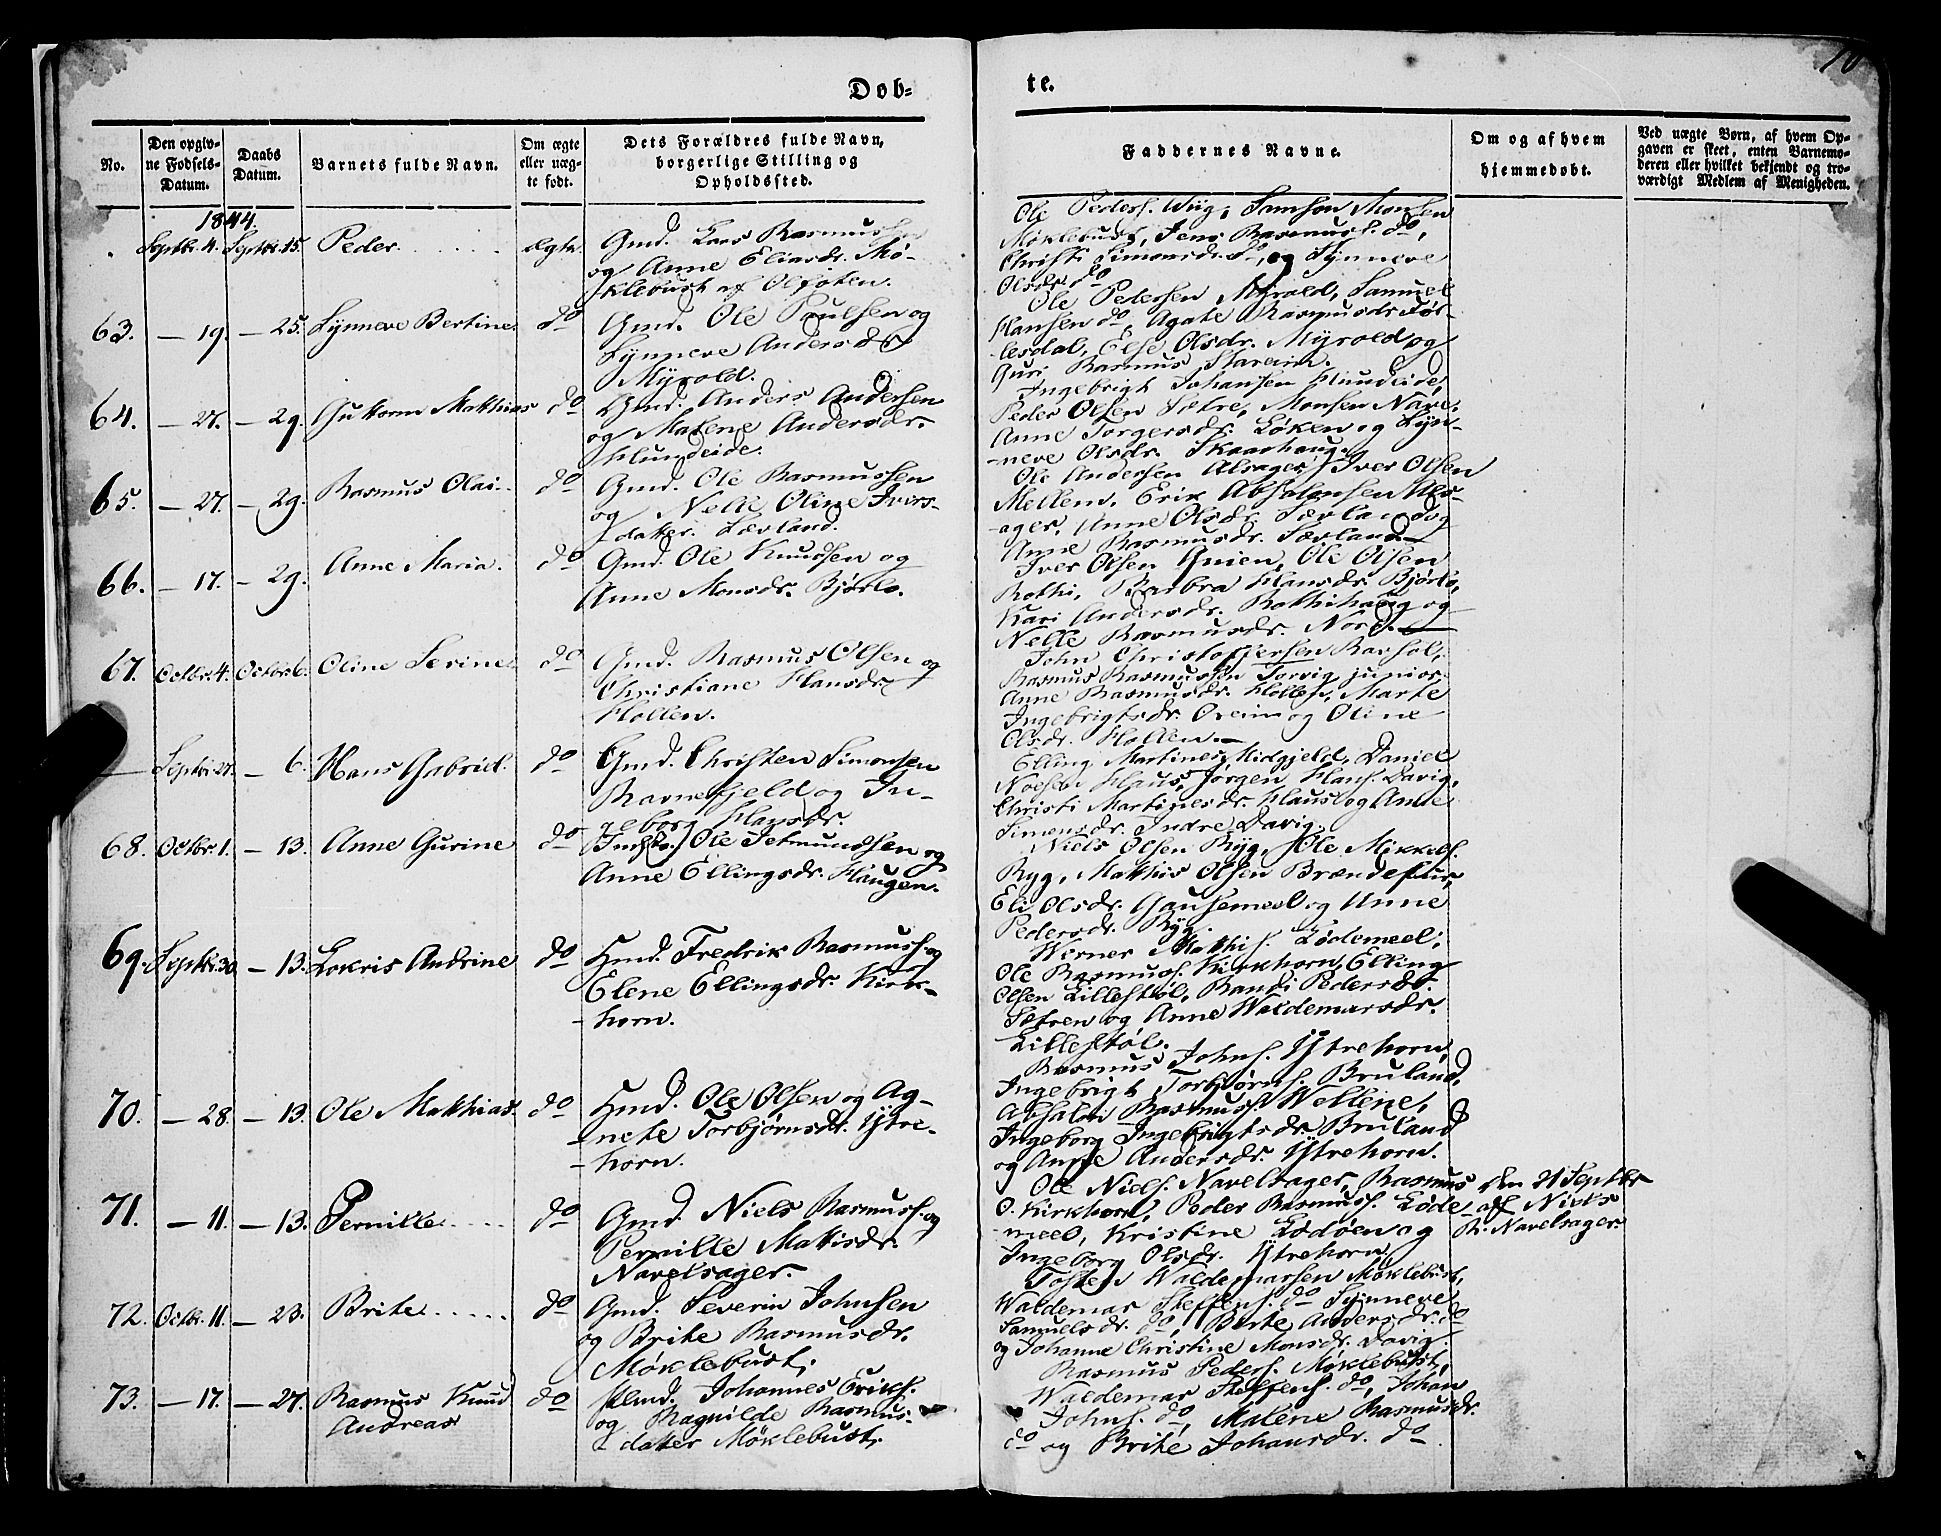 10
Døb-
te.
No.
Den opgiv-
ne Fødsels-
Datum.
Daabs
Datum.
Barnets fulde Navn.
Om ægte
eller uæg-
te født.
Dets Forældres fulde Navn,
borgerlige Stilling og
Opholdssted.
Faddernes Navne.
Om og af hvem
hjemmedøbt.
Ved uægte Børn, af hvem Op-
gaven er skeet, enten Barnemo-
deren eller hvilket bekjendt og tro-
værdigt Medlem af Menigheden.
1844.
Septbr. 4. Septbr. 15. Peder. ægte
Gmd. Lars Rasmussen
og Anne Eliasdr. Mø-
klebust af Olføten.
Ole Peders. Wiig, Samson Monsen
Møklebust, Jens Rasmuss. do,
Christi Simonsdr. do, og Synneve
Olsdr. do
63. — 19. — 25. Synneve Bertine. do
Gmd. Ole Paulsen og
Synneve Andersdr.
Myrold.
Ole Pedersen Myrold, Samuel
Hansen do, Agate Rasmusdr. Føl-
lesdal, Else Olsdr. Myrold og
Guri Rasmus Stareim.
64. — 27. — 29. Guttorm Matthias do
Gmd. Anders Andersen
og Malene Andersdr.
Hundeide.
Ingebrigt Johansen Hundeide,
Peder Olsen Sætre, Monsen Nave,
Anne Torgersdr. Løken og Syn-
-neve Olsdr. Skaarhaug.
65. — 27. — 29. Rasmus Olai. do
Gmd. Ole Rasmussen
og Nelle Oline Ivers-
datter Sævland.
Ole Andersen Alsager, Iver Olsen
Mellem, Erik Absalonsen Als-
-ager, Anne Olsdr. Sævland og
Anne Rasmusdr. Sævland
66. — 17. — 29. Anne Maria. do
Gmd. Ole Knudsen og
Anne Monsdr. Bjørlo.
Iver Olsen Qvien, Ole Olsen
Rothi, Barbra Hansdr. Bjørlo,
Kari Andersdr. Rothihaug og
Nelle Rasmusdr. Nore.
67. Octbr. 4. Octbr. 6. Oline Sevine. do
Gmd. Rasmus Olsen og
Christiane Hansdr.
Hollen.
John Christophersen Barhol,
Rasmus Rasmussen Torvig junior,
Anne Rasmusdr. Hollen, Marte
Ingebrigtsdr. Oreim og Oline
Olsdr. Hollen.
— Septbr. 27. — 6. Hans Gabriel. do
Gmd. Christen Simonsen
Ravnefjeld og In-
geborg Hansdr.
Elling Martines Midgjeld, Daniel
Noesen Haus, Jørgen Hans. Davig,
Christi Martinesdr. Haus og Anne
Simonsdr. Indre Davig.
68. Octbr. 1. — 13. Anne Gurine do
Indst. Ole Jetmundsen og
Anne Ellingsdr. Haugen.
Niels Olsen Ryg, Ole Mikkels.
Ryg, Matthis Olsen Brændefuur,
Eli Olsdr. Gausemeel og Anne
Pedersdr. Ryg.
69. Septbr. 30. — 13. Lokris Andrine do
Hmd. Fredrik Rasmuss. og
Elene Ellingsdr. Kirk-
-horn.
Werner Matthis. Lødemeel,
Ole Rasmuss. Kirkhorn, Elling
Olsen Lillestøl, Randi Pedersdr.
Sætren og Anne Waldemarsdr.
Lillestøl.
70. — 28. — 13. Ole Matthias. do
Hmd. Ole Olsen og Ag-
-nete Torbjørnsdr. Ytre-
-horn.
Rasmus Johns. Ytrehorn,
Ingebrigt Torbjørns. Bruland,
Absalon Rasmuss. Wellene,
Ingeborg Ingebrigtsdr. Bruland
og Anne Andersdr. Ytrehorn.
71. — 11. — 13. Pernille do
Gmd. Niels Rasmuss. og
Pernille Mattisdr.
Navelsager.
Ole Niels. Navelsager, Rasmus
O. Kirkhorn, Peder Rasmuss. Løde-
-meel, Kristine Lødøen og
Ingeborg Olsdr. Ytrehorn
den 21 Septbr
af Niels
R. Navelsager.
72. Octbr. 11. — 23. Brite do
Gmd. Severin Johnsen
og Brite Rasmusdr.
Møklebust.
Tosten Waldemarsen Møklebust,
Waldemar Steffens. do Synneve
Samuelsdr. do, Berte Andersdr. do
og Johanne Christine Monsdr. Davig
73. — 17. — 27. Rasmus Knud
Andreas do
Hmd. Johannes Eriks.
og Ragnilde Rasmus-
datter Møklebust.
Rasmus Peders. Møklebust,
Waldemar Steffens. do, Johan
Johns. do, Malene Rasmusdr.
do og Brite Johansdr. do